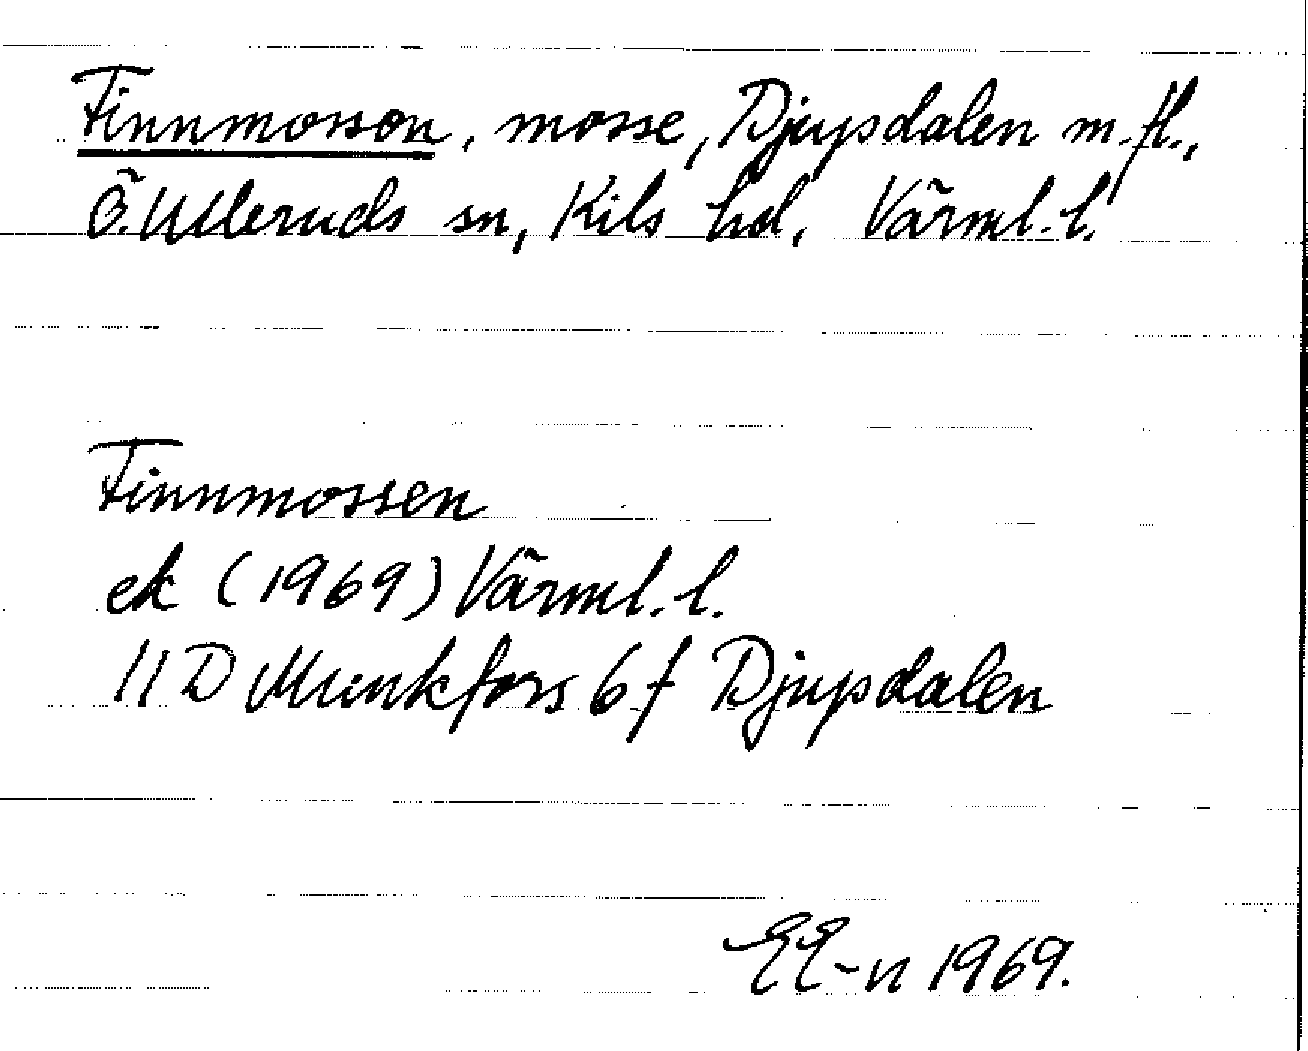 Finnmosson, mosse, Djupsdalen m.fl.,
Ö. Ulleruds sn, Kils hd, Värml. l.
Finnmossen
ek (1969) Värml. l.
11 D Munkfors 6 f Djupsdalen
EE-n 1969.